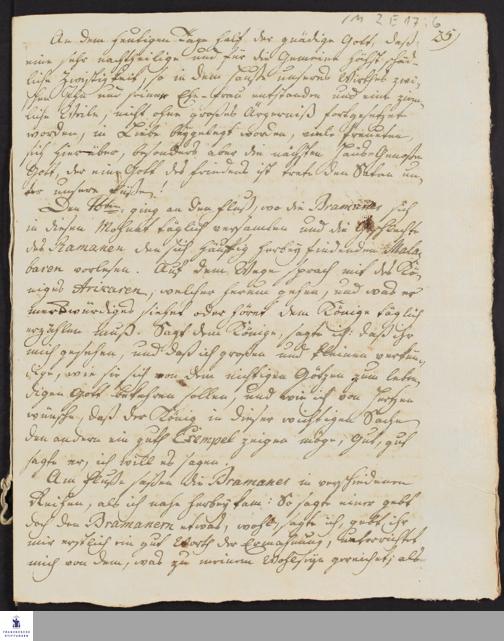 1 M 2 E 17 : 6
25)
An dem heutigen Tage half der gnädige Gott, daß
eine sehr nachtheilige und für die Gemeine höchst schäd-
liche Zwistigkeit, so in dem Hause unseres Wirthes zwi-
schen ihm und seiner Ehe-Frau entstanden und eine ziem-
liche Weile, nicht ohne großes Ärgerniß fortgesetzet
worden, in Liebe beygelegt worden, viele freueten
sich hierüber, besonders aber die nächsten Haus-Genossen
Gott, der ein Gott des Friedens ist trete den Satan un-
ter unsere Füße!
Den ging an den Fluß, wo die Bramanes sich
in diesen Monat täglich versamlen und die
des Ramanen den sich häuffig herbey findenden Mala-
baren vorlesen. Auf dem Wege sprach mit des Kö-
niges Arikaren, welcher herum gehen, und was er
merckwürdiges siehet oder höret dem Könige täglich
erzählen muß. Sagt dem Könige, sagte ich: daß ihr
mich gesehen, und daß ich großen und kleinen verkün-
dige, wie sie sich von dem nichtigen Götzen zum leben-
digen Gott bekehren sollen, und wie ich von Hertzen
wünsche, daß der König in dieser wichtigen Sache
den andern ein gutes Exempel zeigen möge, Gut, gut
sagte er, ich will es sagen.
Am Fluße saßen die Bramanes in verschiedenen
Reihen, als ich nahe herbey kam: So sagte einer gebt
doch den Bramanern etwas, wohl, sagte ich, gebt ihr
mir erstlich ein gut Worth der Ermahnung, unterrichtet
mich von dem, was zu meinem Wohlseyn gereichet; als-
FRANCKESCHE
STIFTUNGEN